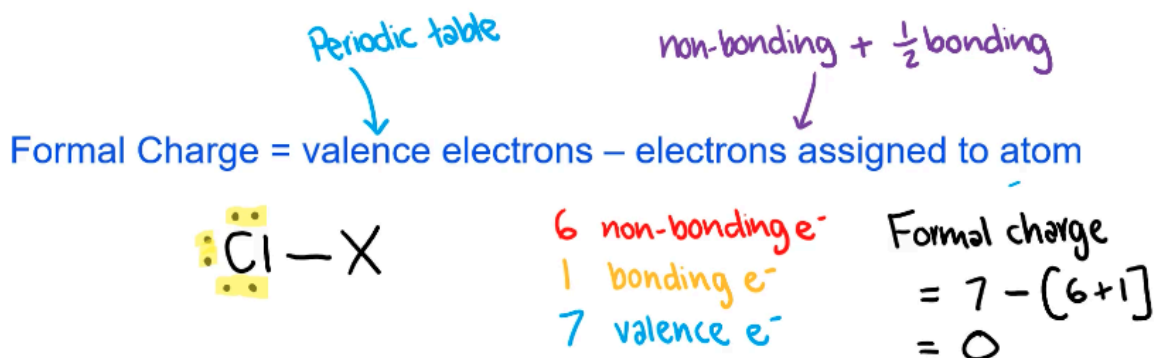 Periodic table
non-bonding + ½ bonding
Formal Charge = valence electrons – electrons assigned to atom
Cl – X
6 non-bonding e⁻
1 bonding e⁻
7 valence e⁻
Formal charge
= 7 – (6+1]
= 0